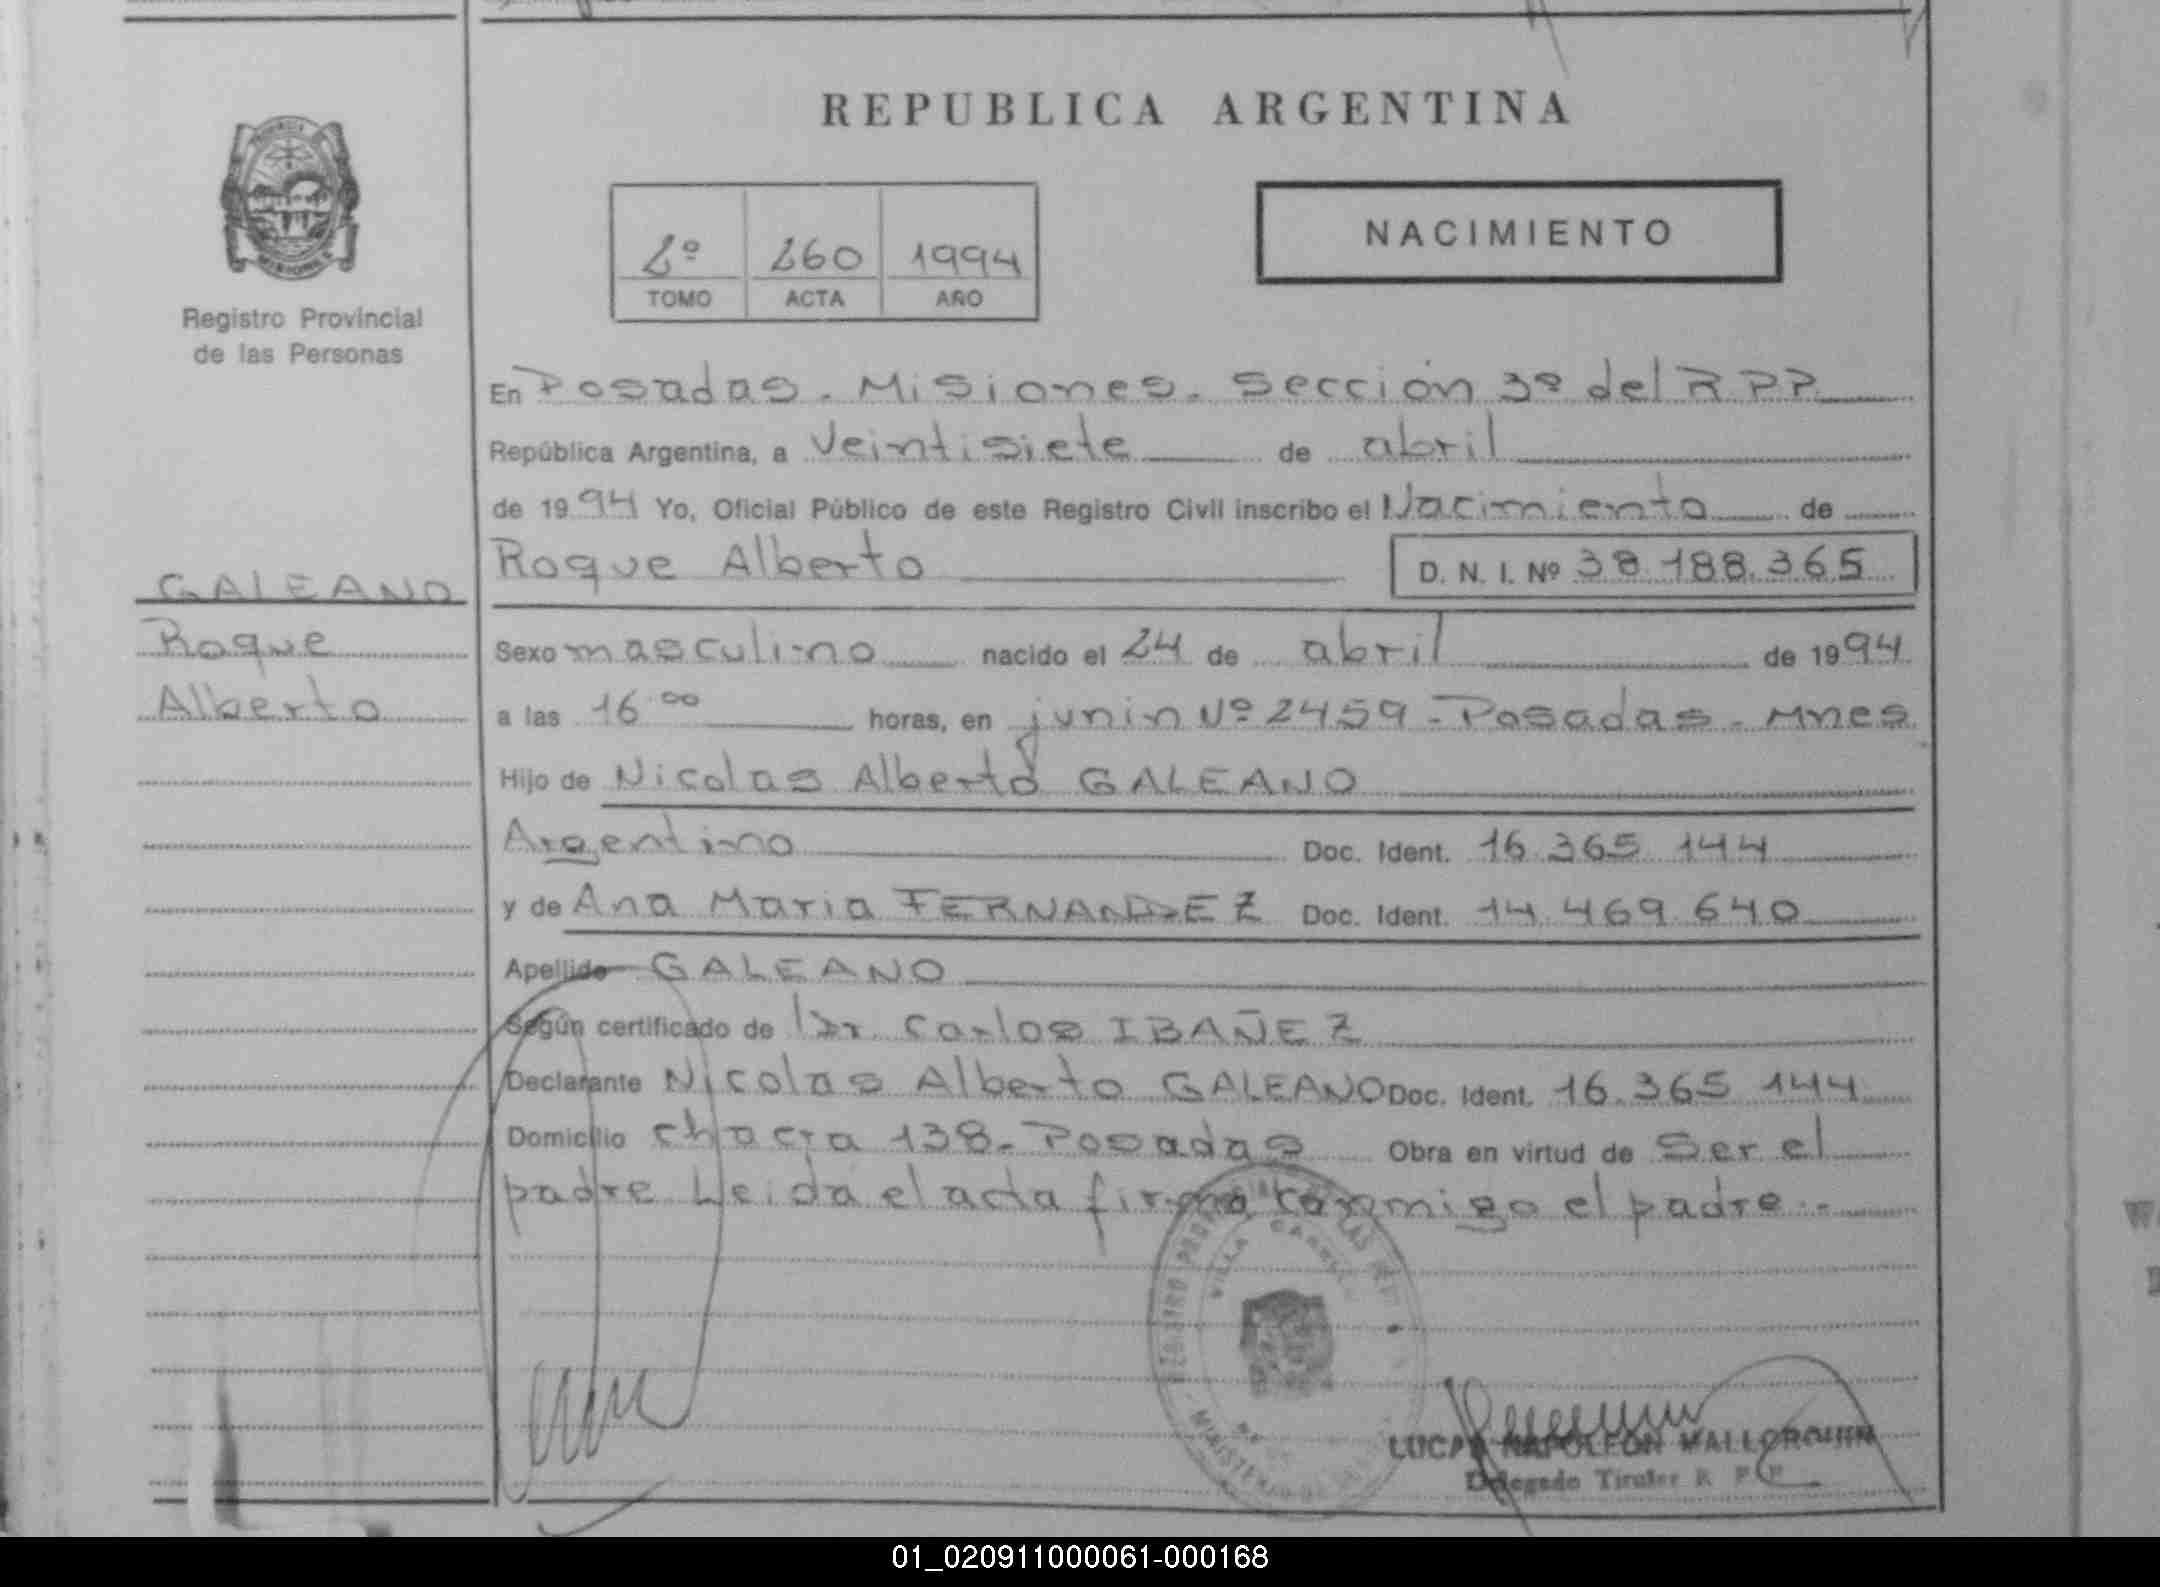 REPUBLICA ARGENTINA
NACIMIENTO
2º 260 1994
TOMO ACTA AÑO
Registro Provincial
de las Personas
En Posadas. Misiones. Sección 3º del R P P.
República Argentina, a Veintisiete de abril
de 1994 Yo, Oficial Público de este Registro Civil inscribo el Nacimiento de
Roque Alberto D. N. I. Nº 38.188.365
GALEANO
Roque
Alberto
Sexo masculino nacido el 24 de abril de 1994
a las 16.00 horas, en junin Nº 2459 - Posadas - Mnes
Hijo de Nicolas Alberto GALEANO
Argentino Doc. Ident. 16.365.144
y de Ana Maria FERNANDEZ Doc. Ident. 14.469.640
Apellido GALEANO
Según certificado de Dr. Carlos IBAÑEZ
Declarante Nicolas Alberto GALEANO Doc. Ident. 16.365.144
Domicilio chacra 138 - Posadas Obra en virtud de Ser el
padre Leida el acta firma conmigo el padre.-
REGISTRO PROVINCIAL DE LAS
VILLA
MINISTERIO
LUCAS NAPOLEON MALLORQUIN
Delegado Titular R P P
01_020911000061-000168